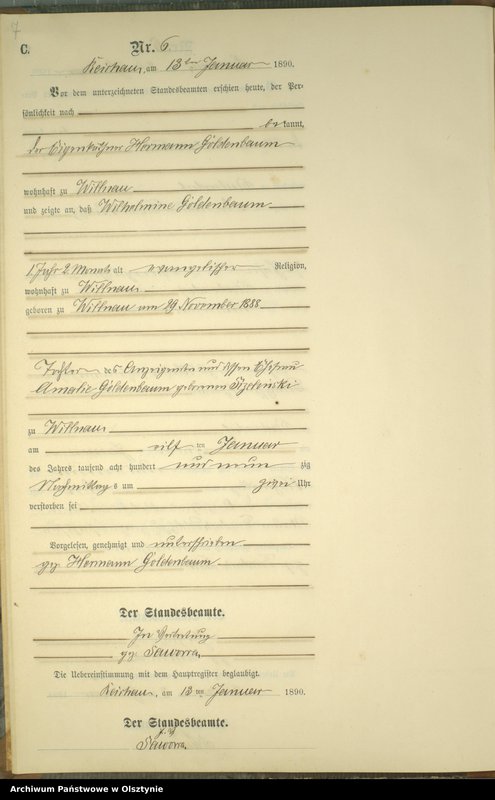 7
C.
Nr. 6
am 13ten Januar 1890.
Vor dem unterzeichneten Standesbeamten erschien heute, der Per-
sönlichkeit nach
bekannt,
der Eigenkäthner Hermann Göldenbaum
wohnhaft zu Willnau
und zeigte an, daß Wilhelmine Göldenbaum
1 Jahr 2 Monate alt evangelischer Religion,
wohnhaft zu Willnau
geboren zu Willnau am 29 November 1888
Tochter des Anzeigenden und dessen Ehefrau
Amalie Göldenbaum geborenen
zu Willnau
am eilf ten Januar
des Jahres tausend acht hundert und neun zig
Nachmittags um zwei Uhr
verstorben sei
Vorgelesen, genehmigt und unterschrieben
gez Hermann Göldenbaum
Der Standesbeamte.
In Vertretung
gez Saworra
Die Uebereinstimmung mit dem Hauptregister beglaubigt.
am 13 ten Januar 1890.
Der Standesbeamte.
Saworra.
Archiwum Państwowe w Olsztynie